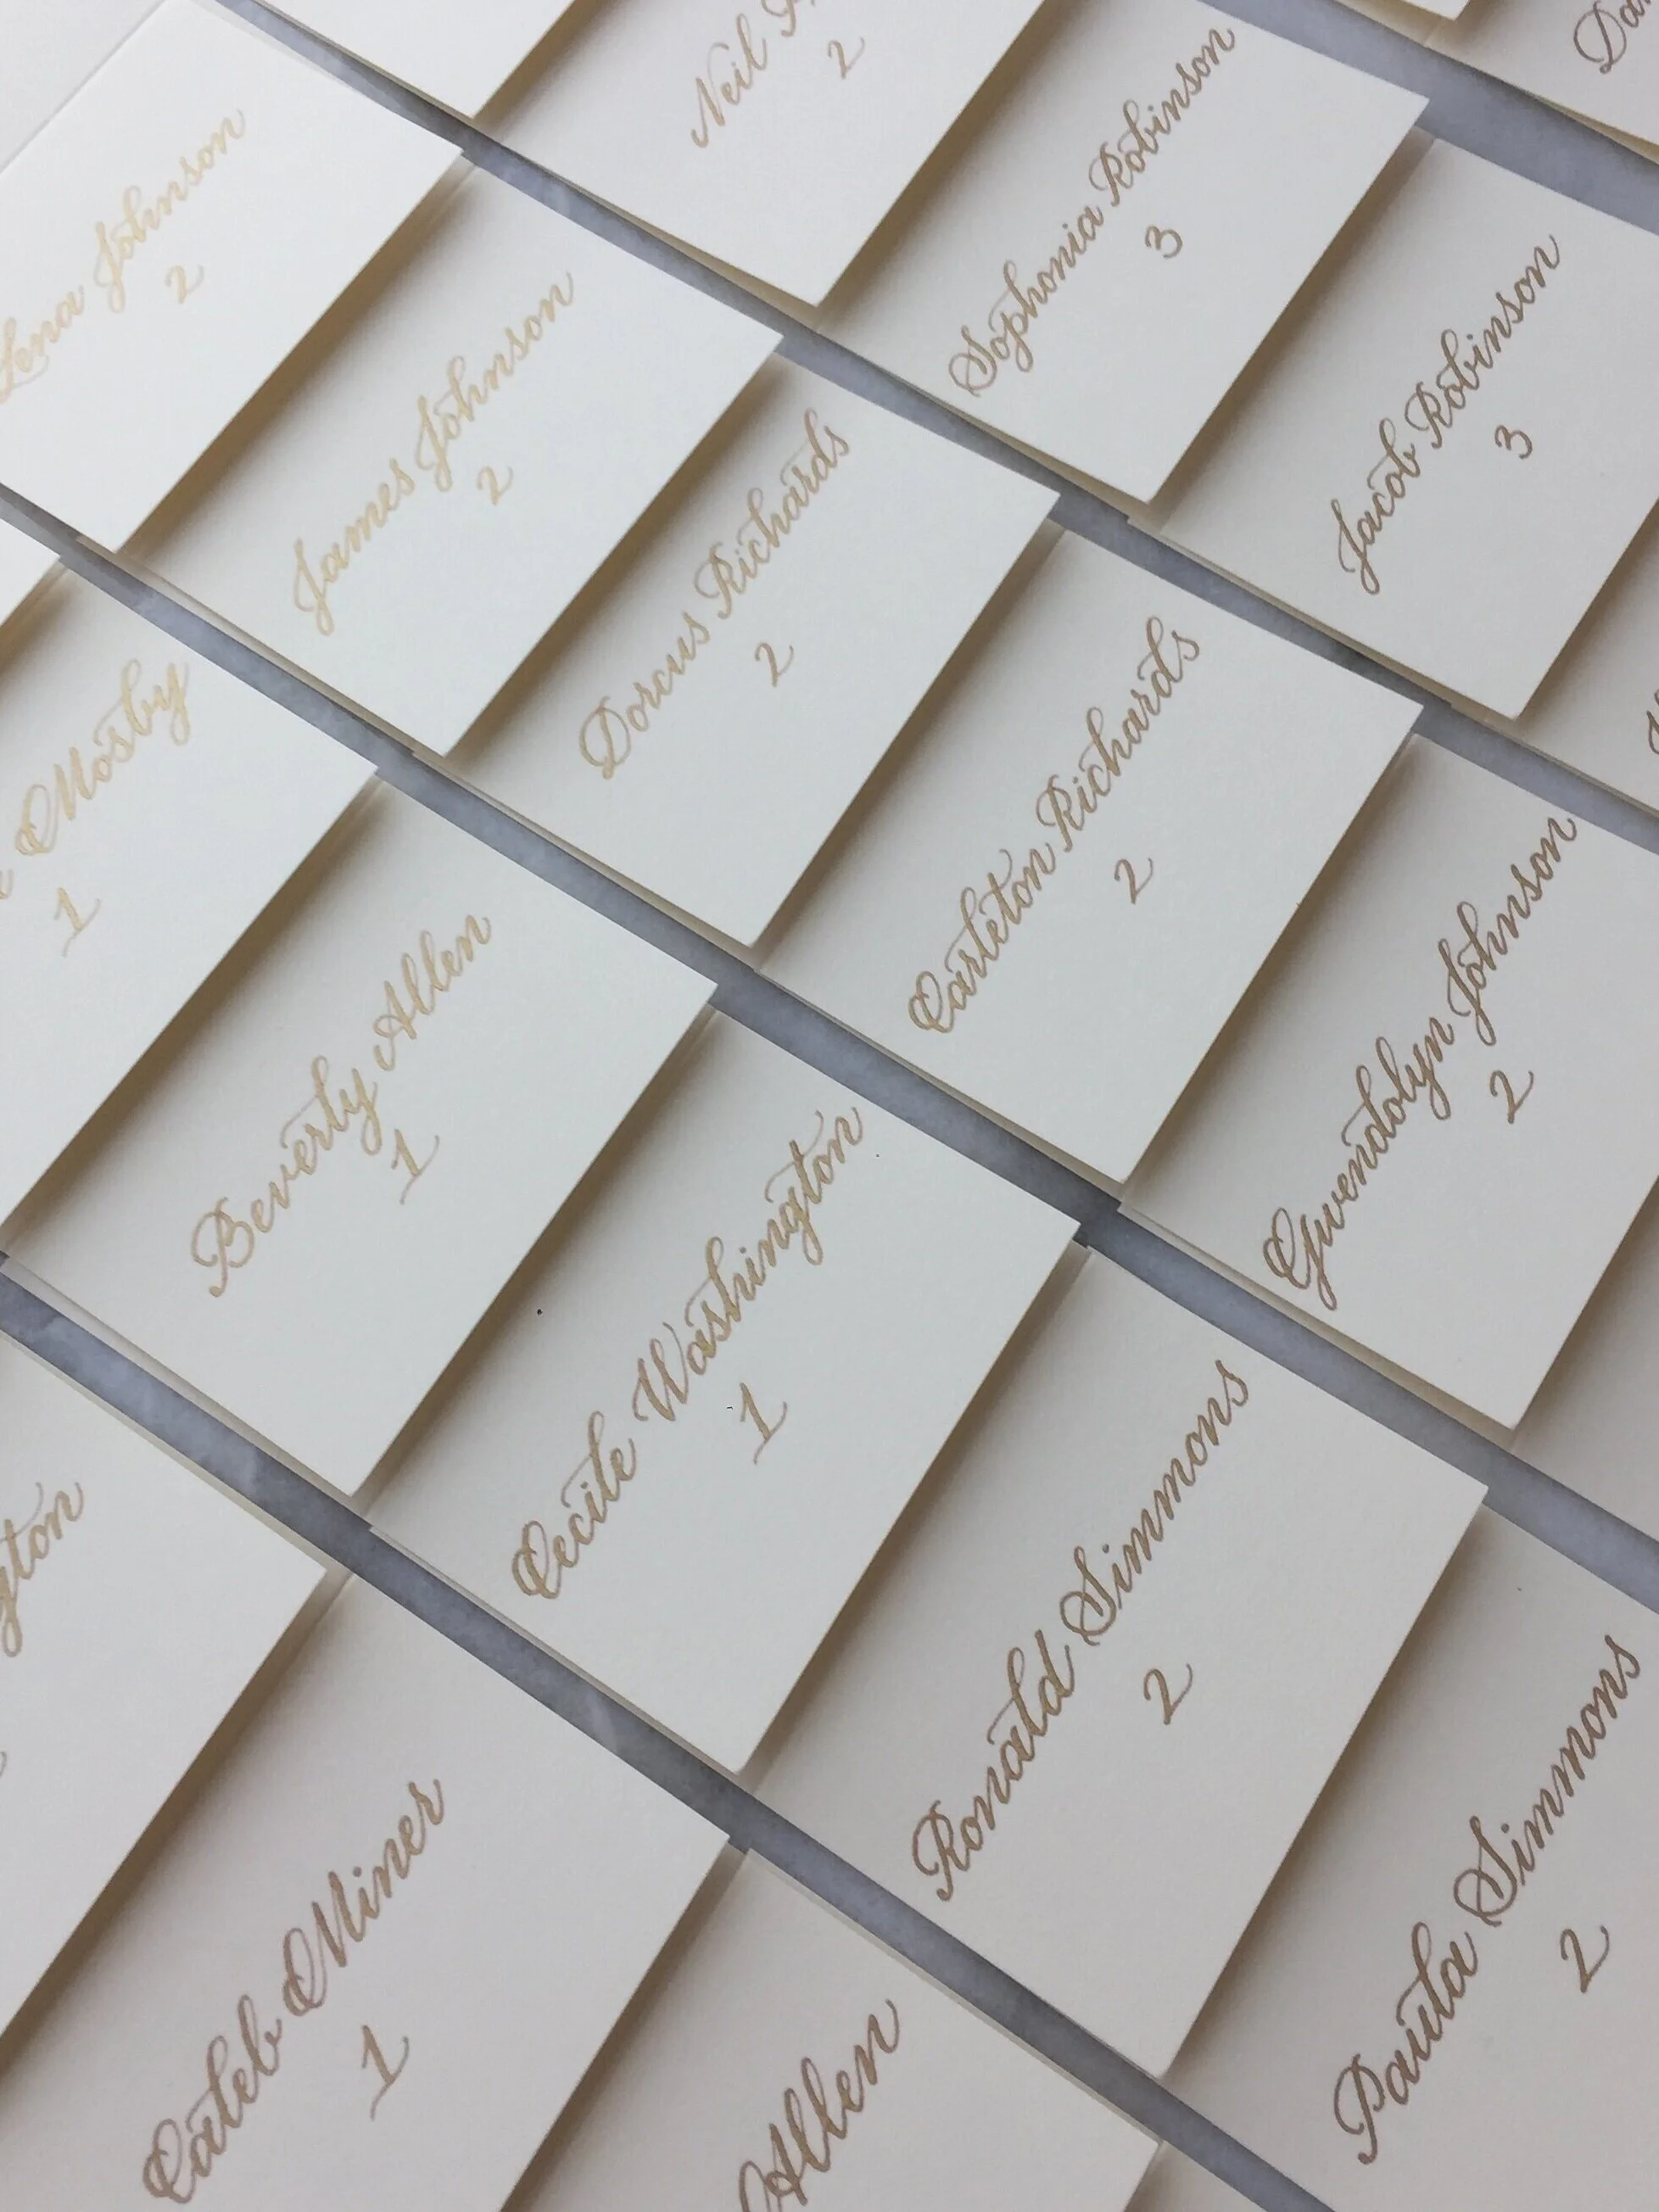 Neil
2
Sophonia Robinson
3
Jacob Robinson
3
Lena Johnson
2
James Johnson
2
Dorcus Richards
2
Carleton Richards
2
Gwendolyn Johnson
2
Mosby
1
Beverly Allen
1
Cecile Washington
1
Ronald Simmons
2
Paula Simmons
2
Caleb Miner
1
Allen